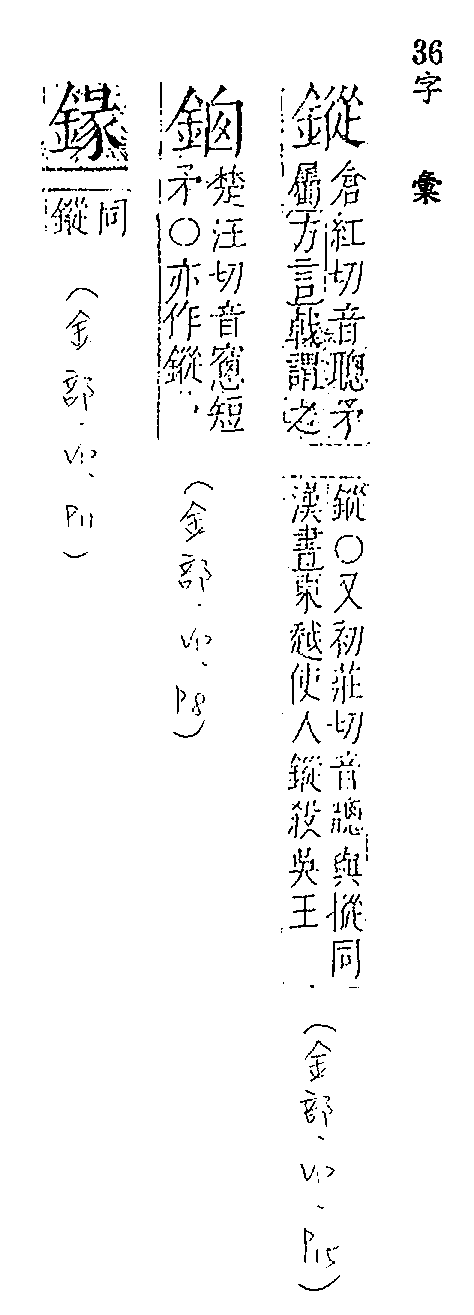 36字 彙
鏦
倉紅切音聰矛
屬方言戟謂之
鏦○又初莊切音牕與摐同
漢書東越使人鏦殺吳王
(金部.卯.P15)
楚汪切音窻短
矛○亦作鏦
(金部.卯.P8)
同
鏦
(金部.卯.P11)